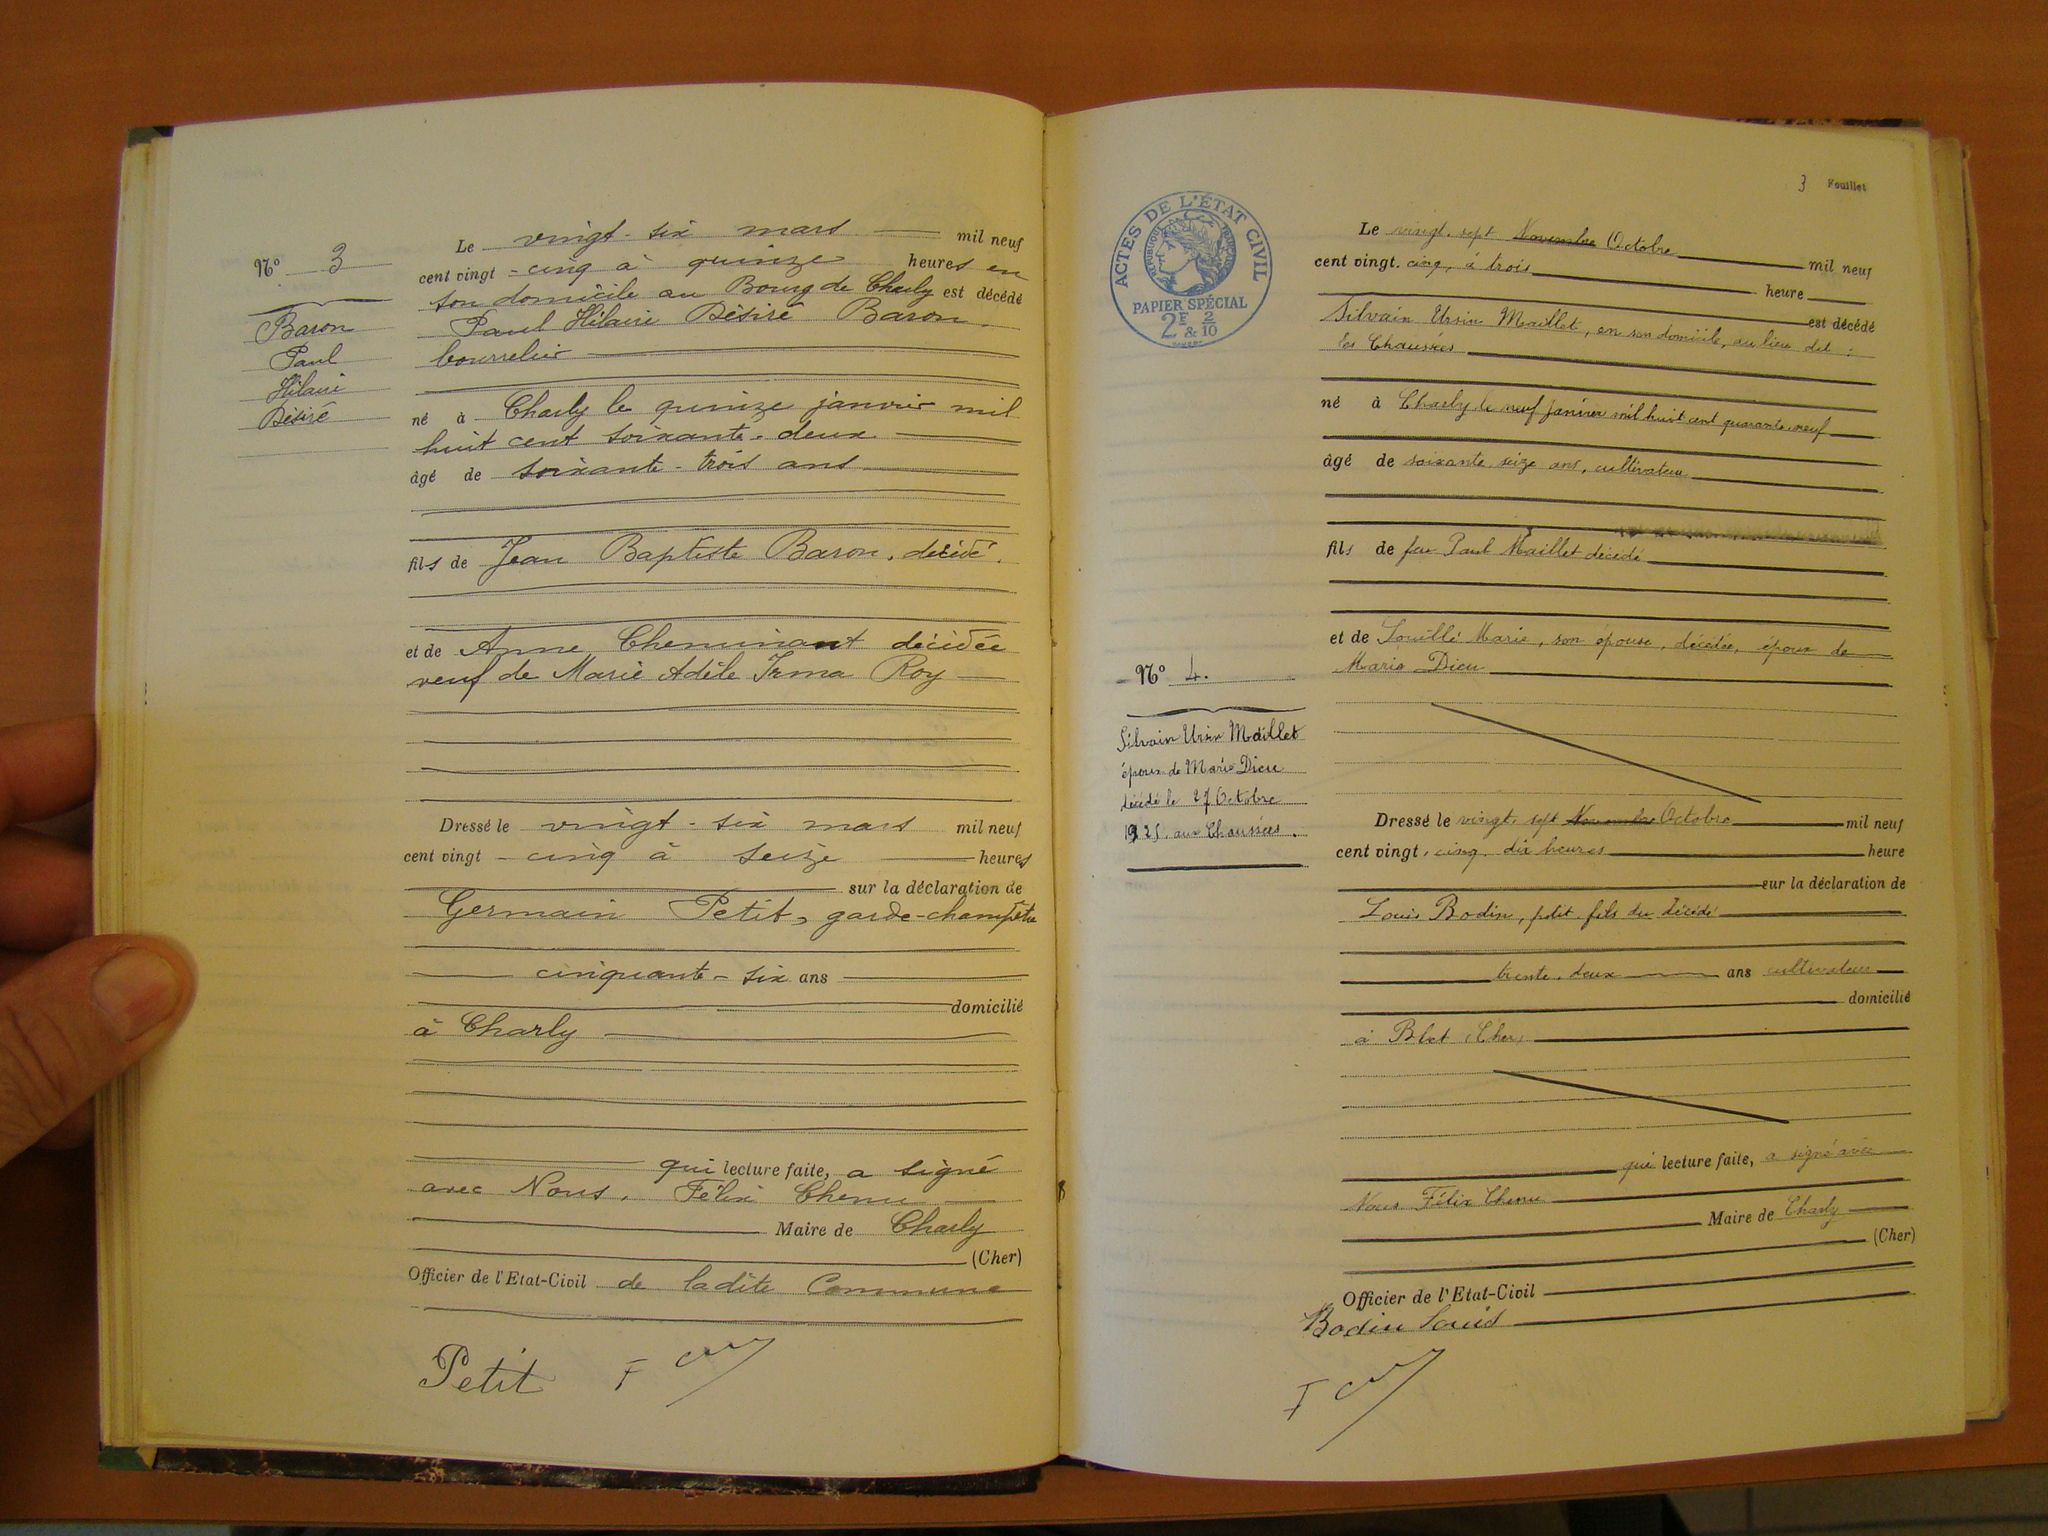 Nº 3
Baron
Paul
Hilaire
Désiré
Le vingt-six mars mil neuf
cent vingt-cinq à quinze heures en
son domicile au Bourg de Charly est décédé
Paul Hilaire Désiré Baron
bourrelier
né à Charly le quinze janvier mil
huit cent soixante-deux
âgé de soixante-trois ans
fils de Jean Baptiste Baron, décédé.
et de Anne Cheminant décédée
veuf de Marie Adèle Irma Roy
Dressé le vingt-six mars mil neuf
cent vingt-cinq à seize heures
sur la déclaration de
Germain Petit, garde-champêtre
cinquante-six ans
domicilié
à Charly
qui lecture faite, a signé
avec Nous, Félix Chenu
Maire de Charly
(Cher)
Officier de l'Etat-Civil de ladite Commune
Petit
3 Feuillet
ACTES DE L'ÉTAT CIVIL
RÉPUBLIQUE FRANÇAISE
PAPIER SPÉCIAL
2F & 2/10
Le vingt-sept Novembre Octobre mil neuf
cent vingt-cinq, à trois
heure
est décédé
Silvain Ursin Maillet, en son domicile, au lieu dit :
les Chaussées
né à Charly le neuf janvier mil huit cent quarante-neuf
âgé de soixante-seize ans, cultivateur
fils de feu Paul Maillet décédé
et de Marie, son épouse, décédée, époux de
Marie Dieu
Nº 4.
Silvain Ursin Maillet
époux de Marie Dieu
décédé le 27 Octobre
1925, aux Chaussées.
Dressé le vingt-sept Novembre Octobre mil neuf
cent vingt-cinq, dix heures heure
sur la déclaration de
Louis Bodin, petit-fils du décédé
trente-deux ans cultivateur
domicilié
à Blet (Cher)
qui lecture faite, a signé avec
Nous Félix Chenu
Maire de Charly
(Cher)
Officier de l'Etat-Civil
Bodin Louis